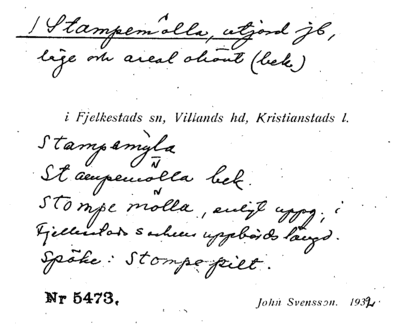 1 Stampemölla, utjord jb,
läge och areal okänt (bek.)
i Fjelkestads sn, Villands hd, Kristianstads l.
Stampemỳla
Staenpemölla bek.
Stompe mölla, enligt uppg. i
Fjelkestads sockens uppbördslängd.
Spöke: Stompepilt.
Nr 5473.
John Svensson. 1932